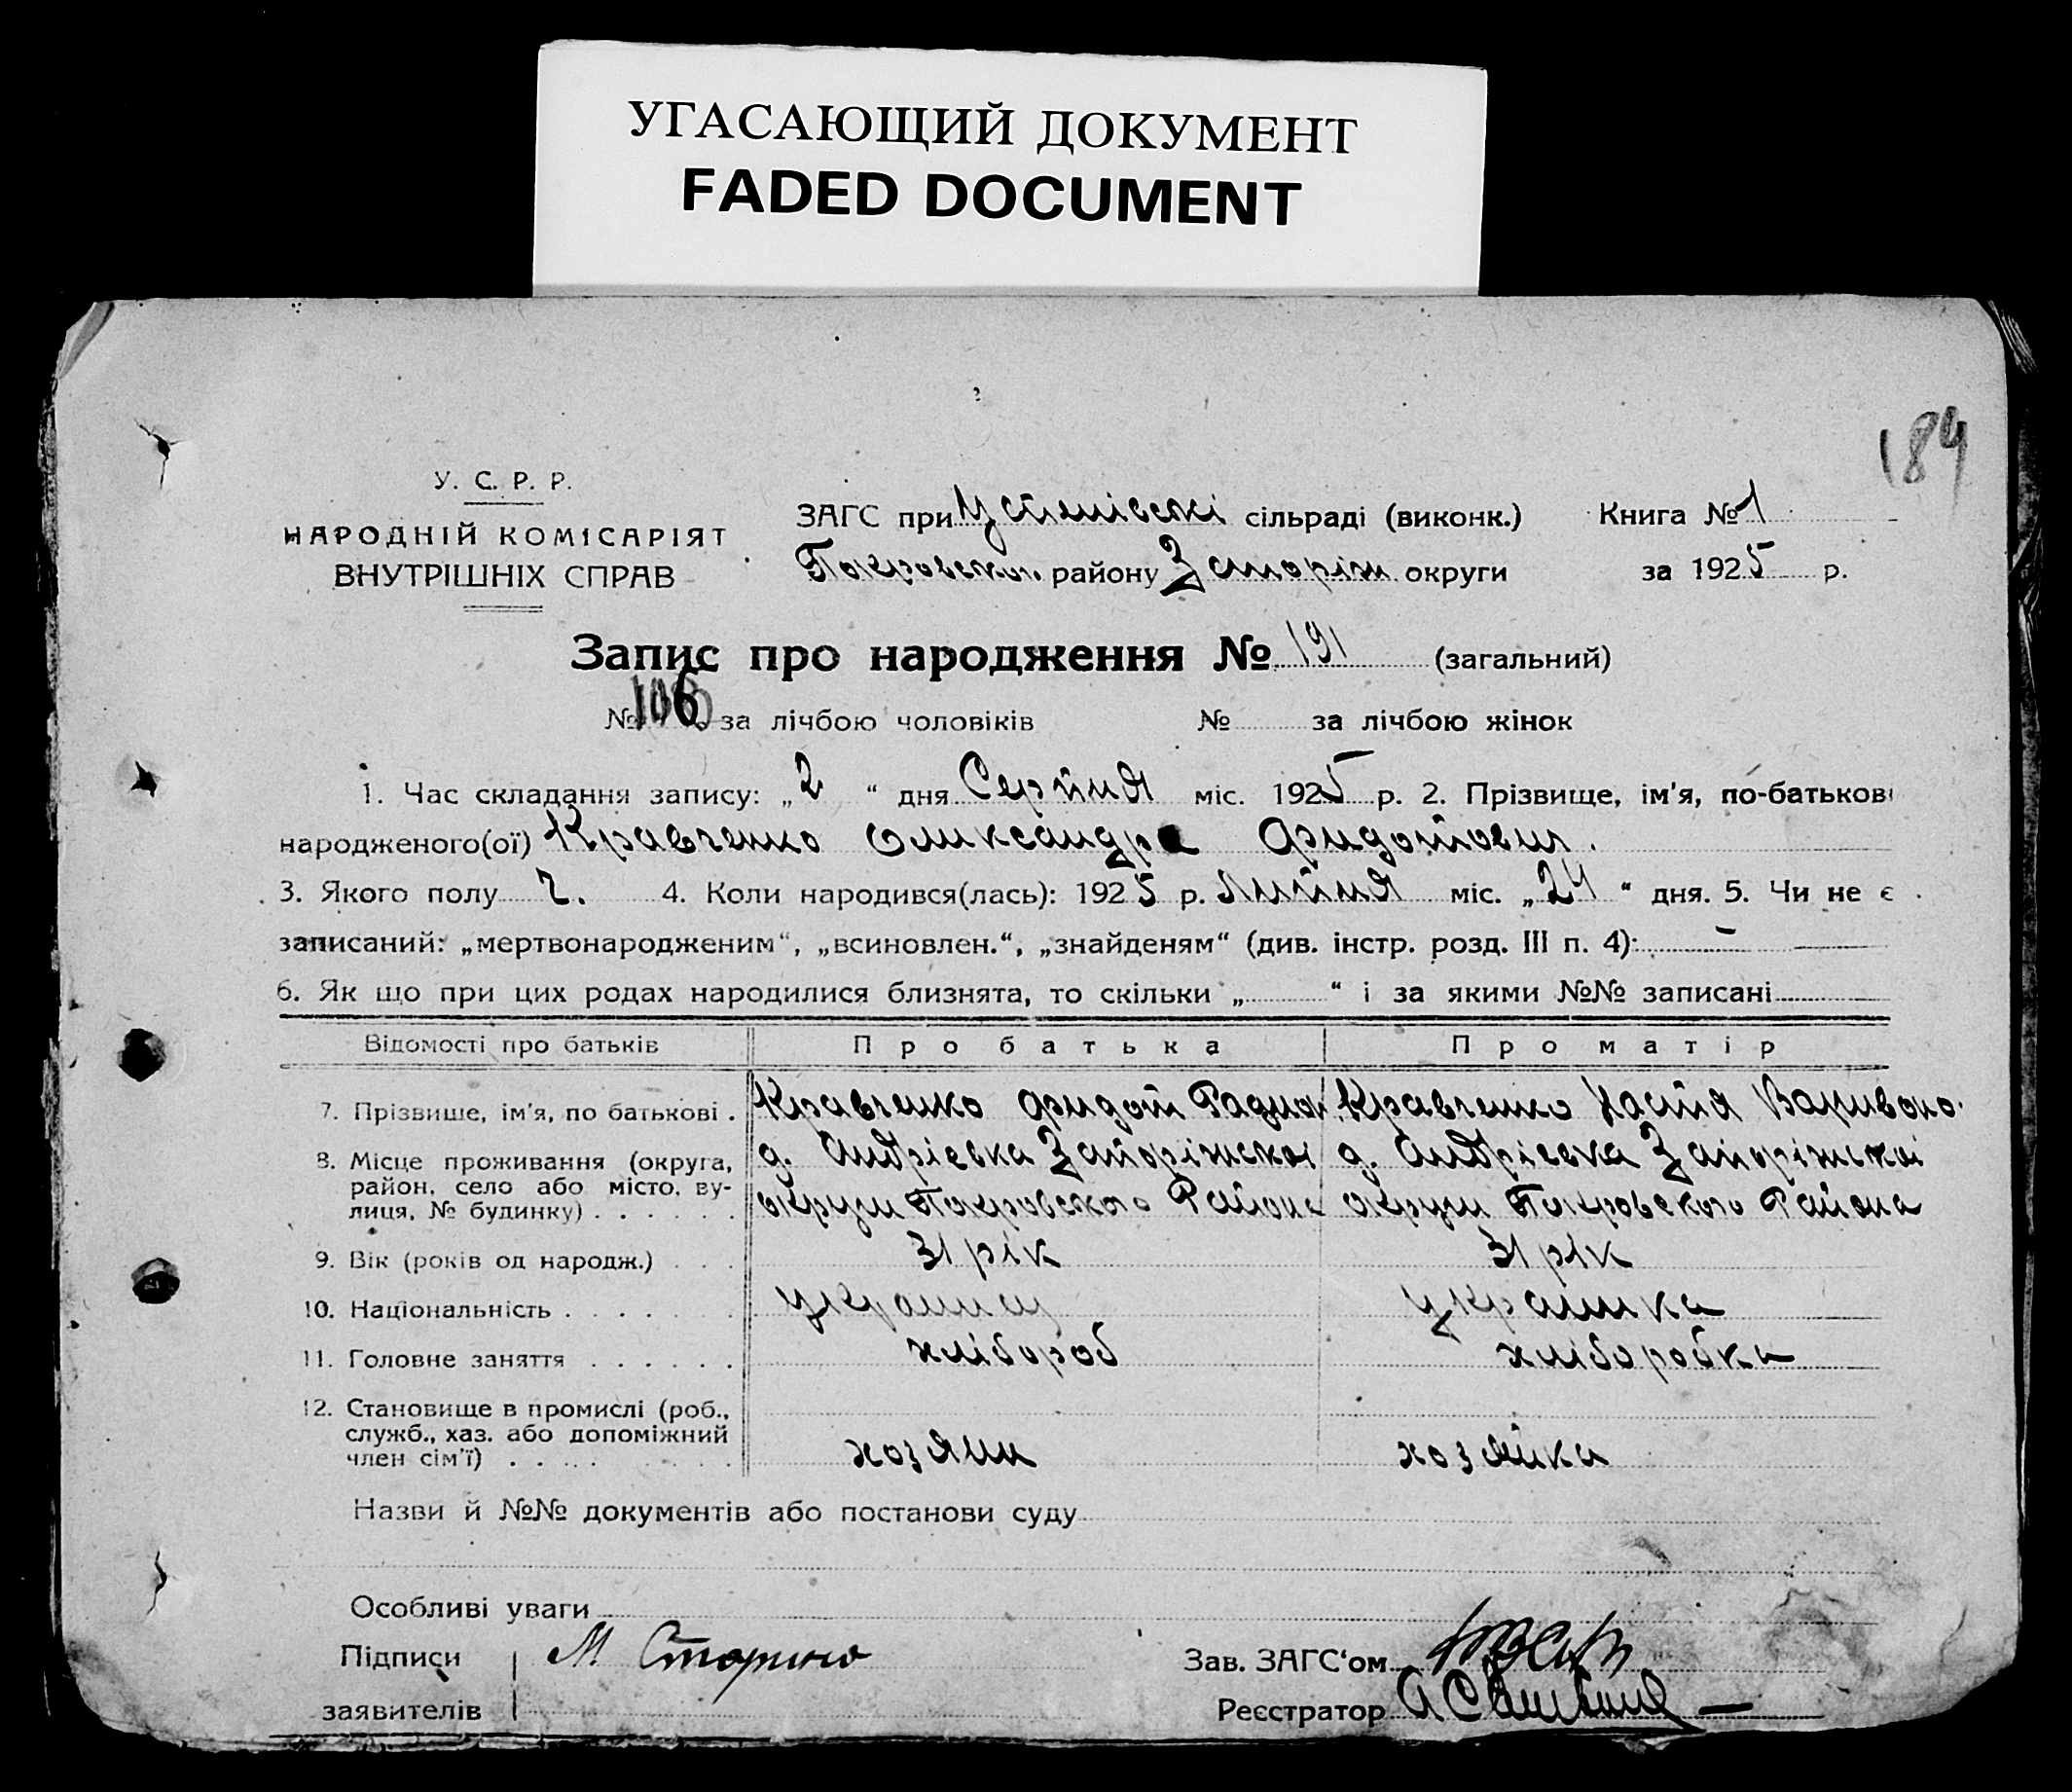 УГАСАЮЩИЙ ДОКУМЕНТ
FADED DOCUMENT
184
У. С. Р. Р.
НАРОДНІЙ КОМІСАРІЯТ
ВНУТРІШНІХ СПРАВ
ЗАГС при Успенівскі сільраді (виконк.) Книга № 1
Покровског. району Запоріж. округи за 1925 р.
Запис про народження № 191 (загальний)
№ 106 за лічбою чоловіків № за лічбою жінок
1. Час складання запису: „2“ дня Серпня міс. 1925 р. 2. Прізвище, ім'я, по-батькові
народженого(ої) Кравченко Оликсандра Фидотович.
3. Якого полу ч. 4. Коли народився(лась): 1925 р. Липня міс. „24“ дня. 5. Чи не є
записаний: „мертвонародженим“, „всиновлен.“, „знайденям“ (див. інстр. розд. III п. 4): –
6. Як що при цих родах народилися близнята, то скільки „ “ і за якими №№ записані
Відомості про батьків Про батька Про матір
7. Прізвище, ім'я, по батькові . Кравченко Фидот Радион Кравченко Настя
8. Місце проживання (округа, район, село або місто, вулиця, № будинку) . . . . . . д. Андрієвка Запоріжскоі округи Покровского Района д. Андрієвка Запоріжскоі округи Покровского Района
9. Вік (років од народж.) . . . 31 рік 31 рік
10. Національність . . . . . . . украинц украинка
11. Головне заняття . . . . . . хлібороб хліборобка
12. Становище в промислі (роб., служб., хаз. або допоміжний член сім'ї) . . . . хозяин хозяйка
Назви й №№ документів або постанови суду
Особливі уваги
Підписи М
заявителів
Зав. ЗАГС‘ом
Реєстратор